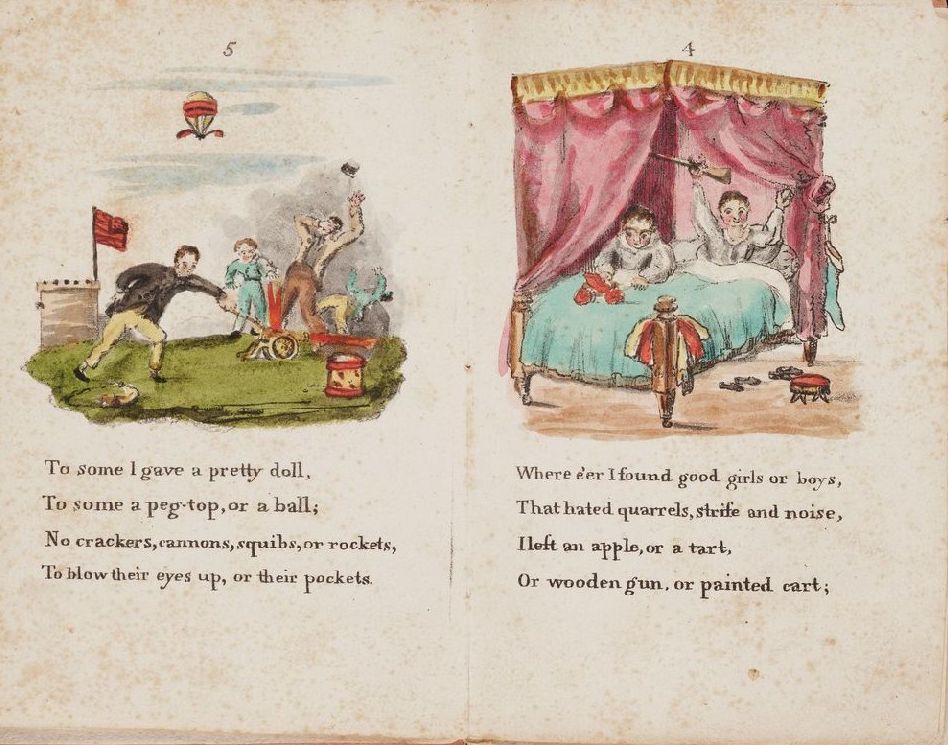 5
To some I gave a pretty doll,
To some a peg-top, or a ball;
No crackers, cannons, squibs, or rockets,
To blow their eyes up, or their pockets.
4
Where e'er I found good girls or boys,
That hated quarrels, strife and noise,
I left an apple, or a tart,
Or wooden gun, or painted cart;